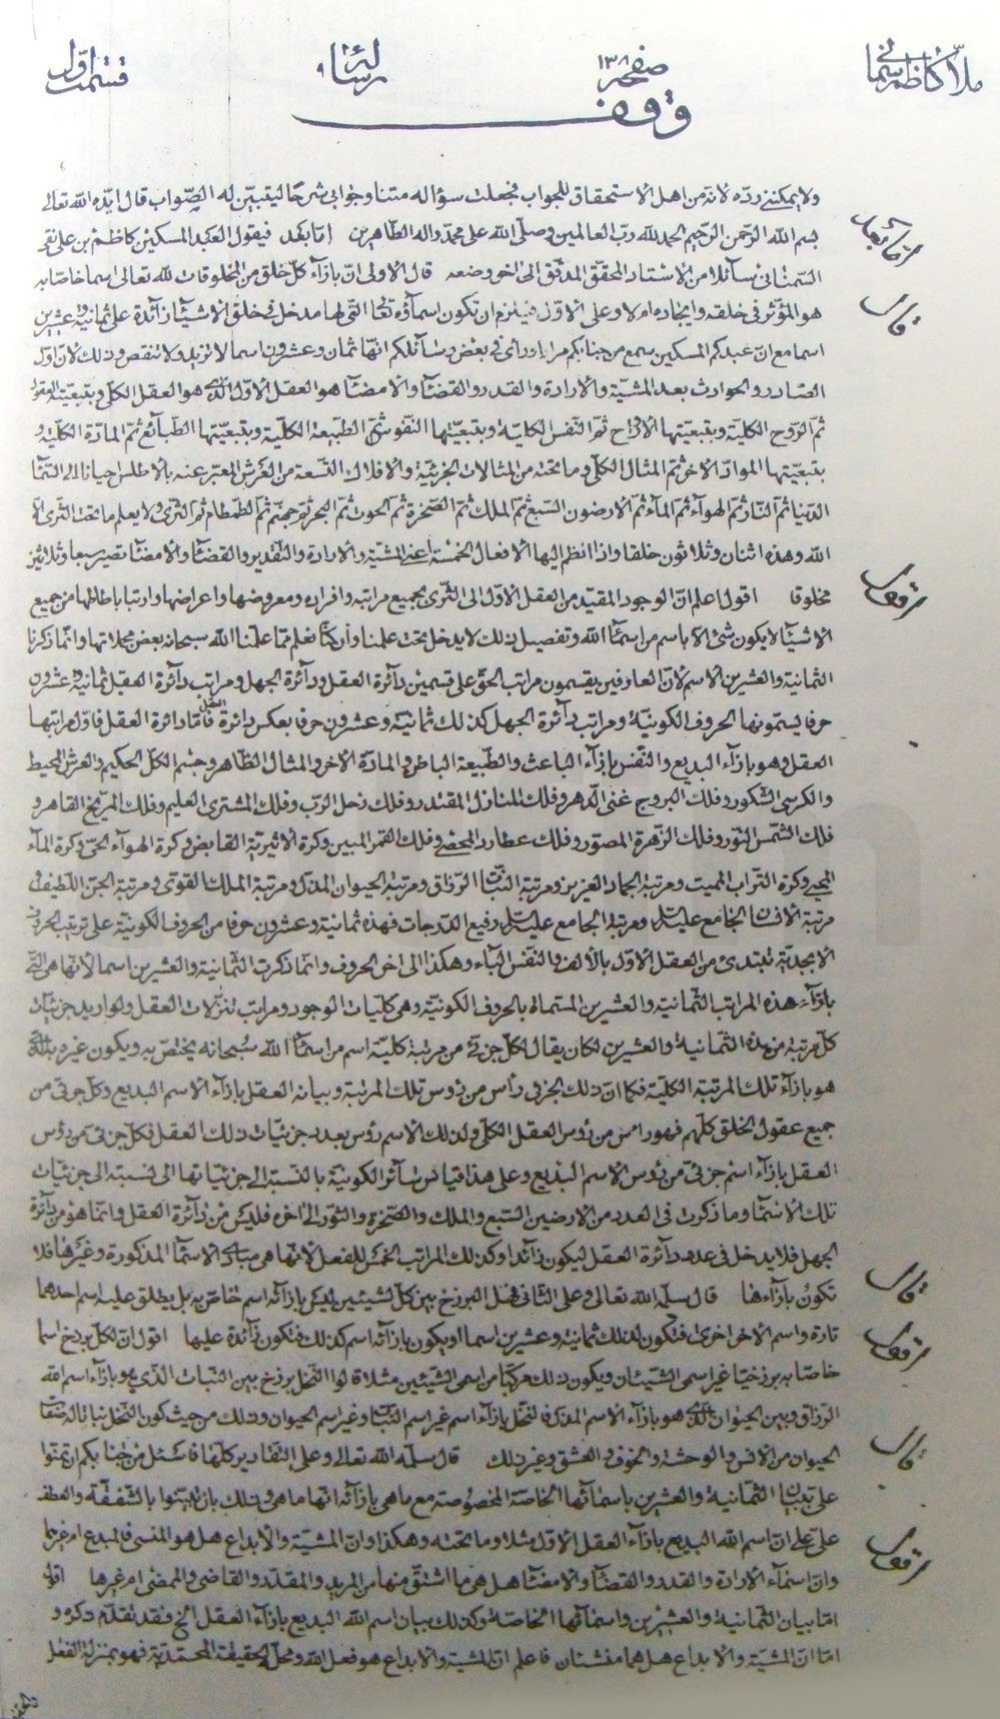 ملّا كاظم سمنانى صفحه ١٣٨ رساله قسمت اوّل
وقف
ولا يمكننى ردّه لانه من اهل الاستحقاق للجواب فجعلت سؤاله متنا وجوابى شرحا ليتبيّن له الصّواب قال ايّده الله تعالى
بسم الله الرّحمن الرّحيم الحمد لله ربّ العالمين وصلّى الله على محمّد واله الطّاهرين امّا بعد فيقول العبد المسكين كاظم بن على نقى
السّمنانى سائلا من الاستاد المحقّق المدقّق الى اخر وضعه قال الاولى انّ بازاء كلّ خلق من المخلوقات لله تعالى اسما خاصّا به
هو المؤثّر فى خلقه وايجاده ام لا وعلى الاوّل فيلزم ان تكون اسماؤه تعالى الّتى لها مدخل فى خلق الاشياء زائدة على ثمانية وعشرين
اسما مع انّ عبدكم المسكين سمع من جنابكم مرارا وراى فى بعض رسائلكم انّها ثمان وعشرون اسما لا تزيد ولا تنقص وذلك لانّ اوّل
الصّادر والحوادث بعد المشيّة والارادة والقدر والقضاء والامضاء هو العقل الاوّل الّذى هو العقل الكلّى وبتبعيّته العقول
ثمّ الرّوح الكليّة وبتبعيّتها الارواح ثمّ النّفس الكليّة وبتبعيّتها النّفوس ثمّ الطّبيعة الكليّة وبتبعيّتها الطّبائع ثمّ المادّة الكليّة و
بتبعيّتها الموادّ الاخر ثمّ المثال الكلّى وما تحته من المثالات الجزئيّة والافلاك التّسعة من العرش المعبّر عنه بالاطلس احيانا الى السّماء
الدّنيا ثمّ النّار ثمّ الهواء ثمّ الماء ثمّ الارضون السّبع ثمّ الملك ثمّ الصّخرة ثمّ الحوت ثمّ البحر ثمّ جهنّم ثمّ الطّمطام ثمّ الثّرى ولا يعلم ما تحت الثّرى الّا
الله وهذه اثنان وثلاثون خلقا واذا انظم اليها الافعال الخمسة اعنى المشيّة والارادة والتّقدير والقضاء والامضاء تصير سبعا وثلاثين
مخلوقا اقول اعلم انّ الوجود المقيّد من العقل الاوّل الى الثّرى بجميع مراتبه وافراده ومعروضها واعراضها وارتباطاتها من جميع
الاشياء لا يكون شئ الّا باسم من اسماء الله وتفصيل ذلك لا يدخل تحت علمنا وان كنّا نعلم ممّا علّمنا الله سبحانه بعض مجملاتها وانّما ذكرنا
الثّمانية والعشرين الاسم لانّ العارفين يقسمون مراتب الحقّ على قسمين دائرة العقل ودائرة الجهل ومراتب دائرة العقل ثمانية وعشرون
حرفا يسمّونها الحروف الكونيّة ومراتب دائرة الجهل كذلك ثمانية وعشرون حرفا بعكس دائرة العقل فامّا دائرة العقل فاوّل مراتبها
العقل وهو بازاء البديع والنّفس بازاء الباعث والطّبيعة الباطن والمادّة الاخر والمثال الظّاهر وجسم الكلّ الحكيم والعرش المحيط
والكرسى الشّكور وفلك البروج غنىّ الدّهر وفلك المنازل المقتدر وفلك زحل الرّب وفلك المشترى العليم وفلك المرّيخ القاهر و
فلك الشّمس النّور وفلك الزّهرة المصوّر وفلك عطارد المحصى وفلك القمر المبين وكرة الاثيريّة القابض وكرة الهواء الحىّ وكرة الماء
المحيى وكرة التّراب المميت ومرتبة الجماد العزيز ومرتبة النّبات الرّزّاق ومرتبة الحيوان المذلّ ومرتبة الملك القوىّ ومرتبة الجنّ اللّطيف و
مرتبة الانسان الجامع ومرتبة الجامع رفيع الدّرجات فهذه ثمانية وعشرون حرفا من الحروف الكونيّة على ترتيب الحروف
الابجديّة تبتدئ من العقل الاوّل بالالف والنّفس الباء وهكذا الى اخر الحروف وانّما ذكرت الثّمانية والعشرين اسما لانّها هى الّتى
بازاء هذه المراتب الثّمانية والعشرين المسمّاة بالحروف الكونيّة وهى كليّات الوجود ومراتب تنزّلات العقل ولو اريد جزئيّات
كلّ مرتبة من هذه الثّمانية والعشرين لكان يقال لكلّ جزئىّ من مرتبة كليّة اسم من اسماء الله سبحانه يختصّ به ويكون غيره بالّذى
هو بازاء تلك المرتبة الكليّة فكما انّ ذلك الجزئى رأس من رؤس تلك المرتبة وبيانه العقل بازاء الاسم البديع وكلّ جزئى من
جميع عقول الخلق كلّهم فهو رأس من رؤس العقل الكلّى ولذلك الاسم رؤس بعدد جزئيّات ذلك العقل فكلّ جزئى من رؤس
العقل بازاء اسم جزئىّ من رؤس الاسم البديع وعلى هذا قياس سائر الكونيّة بالنّسبة الى جزئيّاتها الى نسبته الى جزئيّات
تلك الاسماء وما ذكرت فى العدد من الارضين السّبع والملك والصّخرة والثّور الى اخره فليس من دائرة العقل وانّما هو من دائرة
الجهل فلا يدخل فى عدد دائرة العقل ليكون زائدا وكذلك المراتب الخمس للفعل لانّها هى مبادى الاسماء المذكورة وغيرها فلا
تكون بازاءها قال سلّمه الله تعالى وعلى الثّانى فهل البرزخ بين كلّ شيئين ليس بازائه اسم خاصّ به بل يطلق عليه اسم احدهما
تارة واسم الاخر اخرى فتكون لذلك ثمانية وعشرين اسما او يكون بازائه اسم كذلك فتكون زائدة عليها اقول انّ لكلّ برزخ اسما
خاصّا به برزخيا غير اسمى الشّيئان ويكون ذلك مركّبا من اسمى الشّيئين مثلا قالوا النّخل برزخ بين النّبات الّذى هو بازاء اسم الله
الرّزّاق وبين الحيوان الّذى هو بازاء الاسم المذلّ فالنّخل بازاء اسم غير اسم النّبات وغير اسم الحيوان وذلك من حيث كون النّخل نباتا له صفات
الحيوان من الانس والوحشة والخوف والعشق وغير ذلك قال سلّمه الله تعالى وعلى التّقادير كلّها فاسئل من جنابكم ان تمنّوا
على ببيان الثّمانية والعشرين باسمائها الخاصّة المخصوصة مع ما هى بازائه انّها ما هى وذلك بان تبيّنوا بالشّفقّة والعطف
على على انّ اسم الله البديع بازاء العقل الاوّل مثلا وما تحته وهكذا وانّ المشيّة والابداع هل هو المنشى فالمبدع ام غيرهما
وانّ اسماء الارادة والقدر والقضاء والامضاء هل هى ما اشتقّ منها من المريد والمقدّر والقاضى والممضى ام غيرها اقول
امّا بيان الثّمانية والعشرين واسمائها الخاصّة وكذلك بيان اسم الله البديع بازاء العقل الخ فقد تقدّم ذكره و
امّا انّ المشيّة والابداع هل هما منشئان فاعلم انّ المشيّة والابداع هو فعل الله ومحلّ الحقيقة المحمّديّة فهو بمنزلة الفعل